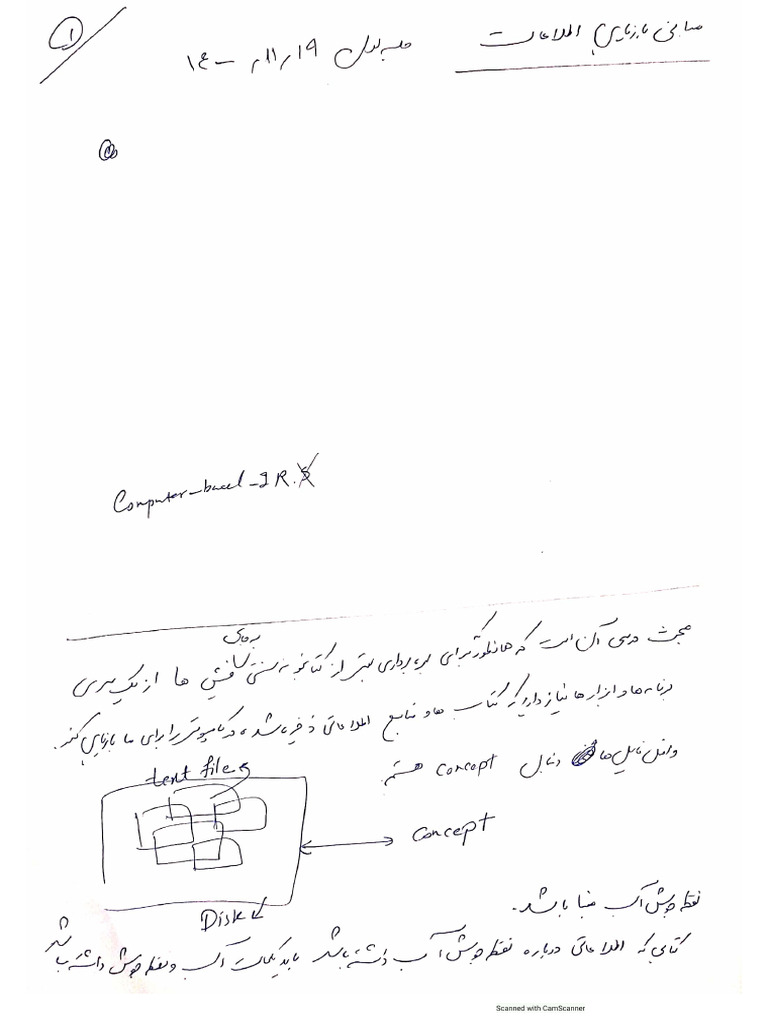 ①
مبانی بازیابی اطلاعات
جلسه اول ۱۹ر۱۱ر۱۴۰۰
Computer-based-IR
بحث درسی آن است که همانطور که برای بهره برداری بهتر از کتابخانه سنتی به جای فیش ها از یک سری
برنامه ها و ابزارها نیاز داریم که کتاب ها و منابع اطلاعاتی ذخیره شده در کامپیوتر را برای ما بازیابی کند.
داخل فایل ها دنبال concept هستم
text files
Concept
Disk
نقطه جوش آب مبنا باشد.
کتابی که اطلاعاتی درباره نقطه جوش آب داشته باشد باید کلمات آب و نقطه جوش داشته باشد
Scanned with CamScanner